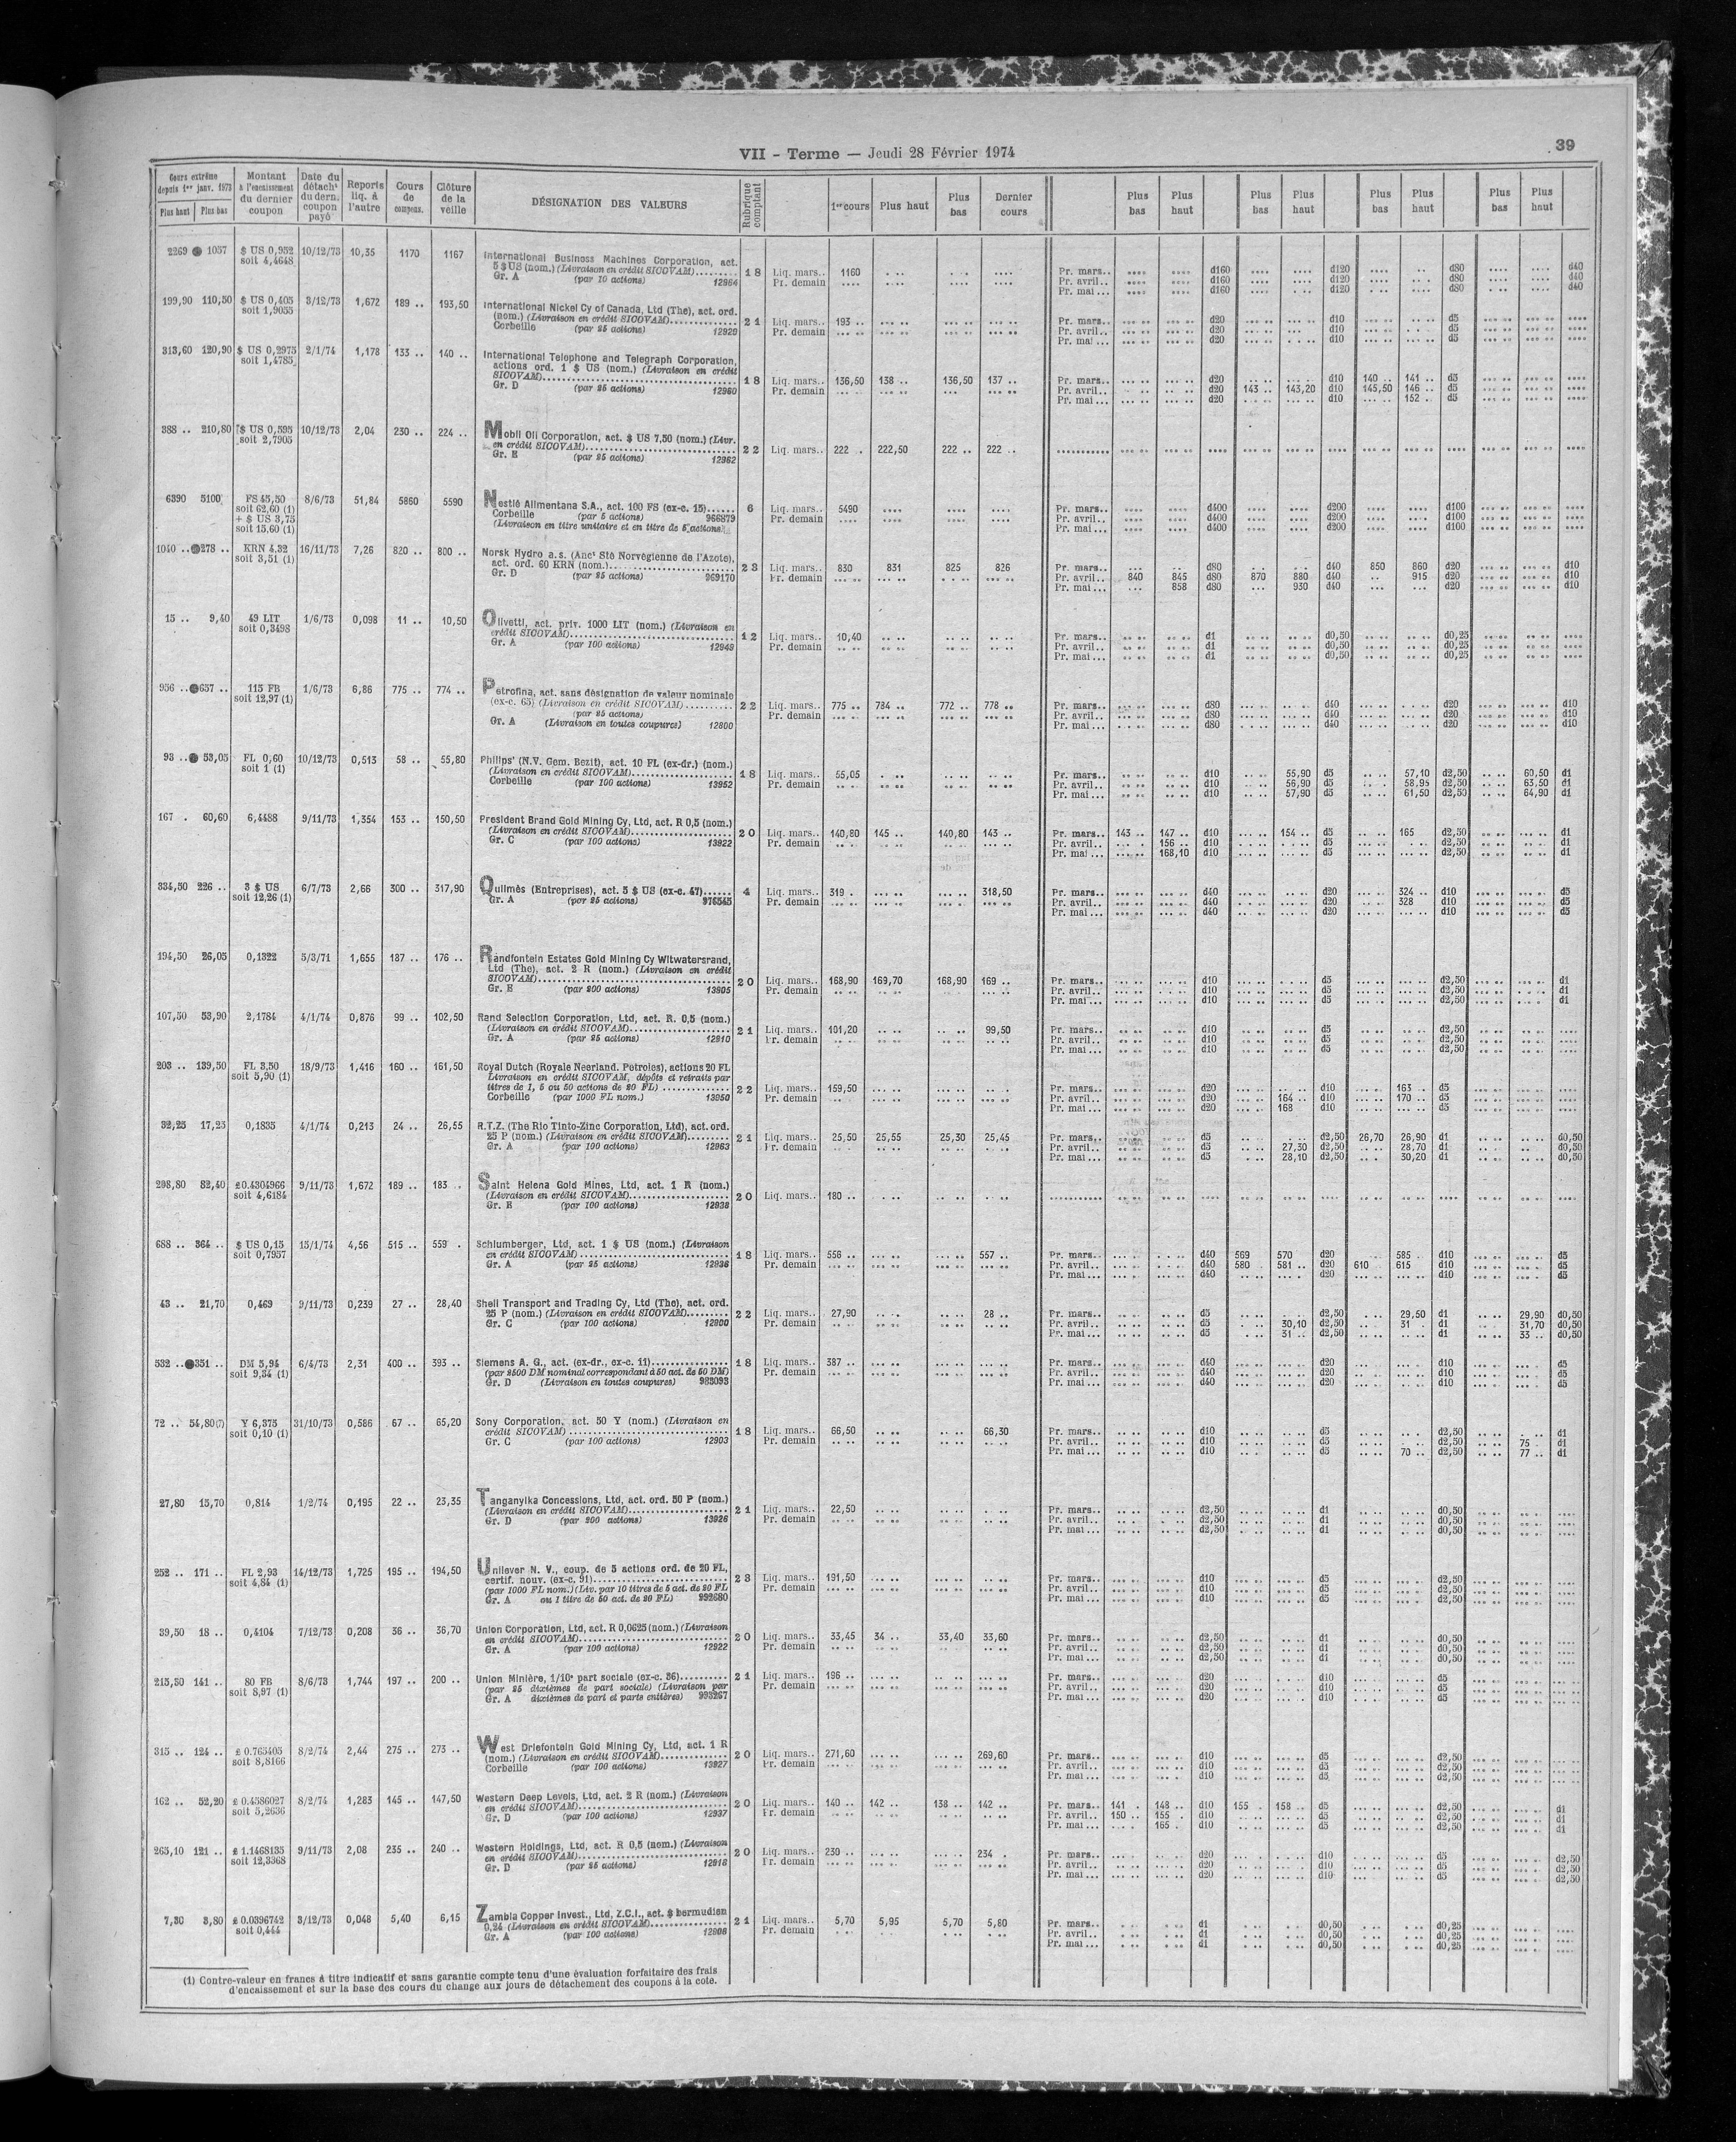 VII - Terme — Jeudi 28 Février 1974
39
Cours extrême depuis 1er janv. 1973 Plus haut Plus bas
Montant à l'encaissement du dernier coupon
Date du détacht du dern. coupon payé
Reports liq. à l'autre
Cours de compens.
Clôture de la veille
DÉSIGNATION DES VALEURS
Rubrique comptant
1er cours Plus haut Plus bas Dernier cours
Plus bas Plus haut Plus bas Plus haut Plus bas Plus haut Plus bas Plus haut
2269 1057 $ US 0,952 10/12/73 10,35 1170 1167 International Business Machines Corporation, act.
soit 4,4648 5 $ US (nom.) (Livraison en crédit SICOVAM) 18 Liq. mars.. 1160 Pr. mars.. d160 d120 d80 d40
Gr. A (par 10 actions) 12964 Pr. demain Pr. avril.. d160 d120 d80 d40
Pr. mai... d160 d120 d80 d40
199,90 110,50 $ US 0,405 3/12/73 1,672 189 .. 193,50 International Nickel Cy of Canada, Ltd (The), act. ord.
soit 1,9055 (nom.) (Livraison en crédit SICOVAM) 21 Liq. mars.. 193 .. Pr. mars.. d20 d10 d5
Corbeille (par 25 actions) 12929 Pr. demain Pr. avril.. d20 d10 d5
Pr. mai... d20 d10 d5
313,60 120,90 $ US 0,2975 2/1/74 1,178 133 .. 140 .. International Telephone and Telegraph Corporation,
soit 1,4785 actions ord. 1 $ US (nom.) (Livraison en crédit
SICOVAM) 18 Liq. mars.. 136,50 138 .. 136,50 137 .. Pr. mars.. d20 d10 140 .. 141 .. d5
Gr. D (par 25 actions) 12960 Pr. demain Pr. avril.. d20 143 .. 143,20 d10 145,50 146 .. d5
Pr. mai... d20 d10 152 .. d5
388 .. 210,80 $ US 0,595 10/12/73 2,04 230 .. 224 .. Mobil Oil Corporation, act. $ US 7,50 (nom.) (Livr.
soit 2,7905 en crédit SICOVAM) 22 Liq. mars.. 222 . 222,50 222 .. 222 ..
Gr. E (par 25 actions) 12962
6390 5100 FS 45,50 8/6/73 51,84 5860 5590 Nestlé Alimentana S.A., act. 100 FS (ex-c. 15) 6 Liq. mars.. 5490 Pr. mars.. d400 d200 d100
soit 62,60 (1) Corbeille (par 5 actions) 966879 Pr. demain Pr. avril.. d400 d200 d100
+ $ US 3,75 (Livraison en titre unitaire et en titre de 5 actions) Pr. mai... d400 d200 d100
soit 15,60 (1)
1040 .. 278 .. KRN 4,32 16/11/73 7,26 820 .. 800 .. Norsk Hydro a.s. (Anct Sté Norvégienne de l'Azote),
soit 3,51 (1) act. ord. 60 KRN (nom.) 23 Liq. mars.. 830 831 825 826 Pr. mars.. d80 d40 850 860 d20 d10
Gr. D (par 25 actions) 969170 Pr. demain Pr. avril.. 840 845 d80 870 880 d40 915 d20 d10
Pr. mai... 858 d80 930 d40 d20 d10
15 .. 9,40 49 LIT 1/6/73 0,098 11 .. 10,50 Olivetti, act. priv. 1000 LIT (nom.) (Livraison en
soit 0,3498 crédit SICOVAM) 12 Liq. mars.. 10,40 Pr. mars.. d1 d0,50 d0,25
Gr. A (par 100 actions) 12949 Pr. demain Pr. avril.. d1 d0,50 d0,25
Pr. mai... d1 d0,50 d0,25
956 .. 657 .. 115 FB 1/6/73 6,86 775 .. 774 .. Petrofina, act. sans désignation de valeur nominale
soit 12,97 (1) (ex-c. 65) (Livraison en crédit SICOVAM) 22 Liq. mars.. 775 .. 784 .. 772 .. 778 .. Pr. mars.. d80 d40 d20 d10
(par 25 actions) Pr. demain Pr. avril.. d80 d40 d20 d10
Gr. A (Livraison en toutes coupures) 12800 Pr. mai... d80 d40 d20 d10
93 .. 53,05 FL 0,60 10/12/73 0,513 58 .. 55,80 Philips' (N.V. Gem. Bezit), act. 10 FL (ex-dr.) (nom.)
soit 1 (1) (Livraison en crédit SICOVAM) 18 Liq. mars.. 55,05 Pr. mars.. d10 55,90 d5 57,10 d2,50 60,50 d1
Corbeille (par 100 actions) 13952 Pr. demain Pr. avril.. d10 56,90 d5 58,95 d2,50 63,50 d1
Pr. mai... d10 57,90 d5 61,50 d2,50 64,90 d1
167 . 60,60 6,4488 9/11/73 1,354 153 .. 150,50 President Brand Gold Mining Cy, Ltd, act. R 0,5 (nom.)
(Livraison en crédit SICOVAM) 20 Liq. mars.. 140,80 145 .. 140,80 143 .. Pr. mars.. 143 .. 147 .. d10 154 .. d5 165 d2,50 d1
Gr. C (par 100 actions) 13922 Pr. demain Pr. avril.. 156 .. d10 d5 d2,50 d1
Pr. mai... 168,10 d10 d5 d2,50 d1
334,50 226 .. 3 $ US 6/7/73 2,66 300 .. 317,90 Quilmès (Entreprises), act. 5 $ US (ex-c. 47) 4 Liq. mars.. 319 . 318,50 Pr. mars.. d40 d20 324 .. d10 d5
soit 12,26 (1) Gr. A (par 25 actions) 976545 Pr. demain Pr. avril.. d40 d20 328 d10 d5
Pr. mai... d40 d20 d10 d5
194,50 26,05 0,1322 5/3/71 1,655 187 .. 176 .. Randfontein Estates Gold Mining Cy Witwatersrand,
Ltd (The), act. 2 R (nom.) (Livraison en crédit
SICOVAM) 20 Liq. mars.. 168,90 169,70 168,90 169 .. Pr. mars.. d10 d5 d2,50 d1
Gr. E (par 200 actions) 13905 Pr. demain Pr. avril.. d10 d5 d2,50 d1
Pr. mai... d10 d5 d2,50 d1
107,50 53,90 2,1784 4/1/74 0,876 99 .. 102,50 Rand Selection Corporation, Ltd, act. R. 0,5 (nom.)
(Livraison en crédit SICOVAM) 21 Liq. mars.. 101,20 99,50 Pr. mars.. d10 d5 d2,50
Gr. A (par 25 actions) 12910 Pr. demain Pr. avril.. d10 d5 d2,50
Pr. mai... d10 d5 d2,50
203 .. 139,50 FL 3,50 18/9/73 1,416 160 .. 161,50 Royal Dutch (Royale Neerland. Pétroles), actions 20 FL
soit 5,90 (1) Livraison en crédit SICOVAM, dépôts et retraits par
titres de 1, 5 ou 50 actions de 20 FL) 22 Liq. mars.. 159,50 Pr. mars.. d20 d10 163 .. d5
Corbeille (par 1000 FL nom.) 13950 Pr. demain Pr. avril.. d20 164 .. d10 170 .. d5
Pr. mai... d20 168 d10 d5
32,25 17,25 0,1835 4/1/74 0,213 24 .. 26,55 R.T.Z. (The Rio Tinto-Zinc Corporation, Ltd), act. ord.
25 P (nom.) (Livraison en crédit SICOVAM) 21 Liq. mars.. 25,50 25,55 25,30 25,45 Pr. mars.. d5 d2,50 26,70 26,90 d1 d0,50
Gr. A (par 100 actions) 12963 Pr. demain Pr. avril.. d5 27,30 d2,50 28,70 d1 d0,50
Pr. mai... d5 28,10 d2,50 30,20 d1 d0,50
208,80 82,40 £ 0.4304966 9/11/73 1,672 189 .. 183 . Saint Helena Gold Mines, Ltd, act. 1 R (nom.)
soit 4,6184 (Livraison en crédit SICOVAM) 20 Liq. mars.. 180 ..
Gr. E (par 100 actions) 12938
688 .. 364 .. $ US 0,15 15/1/74 4,56 515 .. 559 . Schlumberger, Ltd, act. 1 $ US (nom.) (Livraison
soit 0,7957 en crédit SICOVAM) 18 Liq. mars.. 556 .. 557 .. Pr. mars.. d40 569 570 d20 585 . d10 d5
Gr. A (par 25 actions) 12936 Pr. demain Pr. avril.. d40 580 581 .. d20 610 615 d10 d5
Pr. mai... d40 d20 d10 d5
43 .. 21,70 0,469 9/11/73 0,239 27 .. 28,40 Shell Transport and Trading Cy, Ltd (The), act. ord.
25 P (nom.) (Livraison en crédit SICOVAM) 22 Liq. mars.. 27,90 28 .. Pr. mars.. d5 d2,50 29,50 d1 29,90 d0,50
Gr. C (par 100 actions) 12900 Pr. demain Pr. avril.. d5 30,10 d2,50 31 .. d1 31,70 d0,50
Pr. mai... d5 31 .. d2,50 d1 33 .. d0,50
532 .. 351 .. DM 5,94 6/4/73 2,31 400 .. 393 .. Siemens A. G., act. (ex-dr., ex-c. 11) 18 Liq. mars.. 387 .. Pr. mars.. d40 d20 d10 d5
soit 9,34 (1) (par 2500 DM nominal correspondant à 50 act. de 50 DM) Pr. demain Pr. avril.. d40 d20 d10 d5
Gr. D (Livraison en toutes coupures) 983093 Pr. mai... d40 d20 d10 d5
72 .. 54,80(7) Y 6,375 31/10/73 0,586 67 .. 65,20 Sony Corporation, act. 50 Y (nom.) (Livraison en
soit 0,10 (1) crédit SICOVAM) 18 Liq. mars.. 66,50 66,30 Pr. mars.. d10 d5 d2,50 d1
Gr. C (par 100 actions) 12903 Pr. demain Pr. avril.. d10 d5 d2,50 75 . d1
Pr. mai... d10 d5 70 .. d2,50 77 .. d1
27,80 15,70 0,814 1/2/74 0,195 22 .. 23,35 Tanganyika Concessions, Ltd, act. ord. 50 P (nom.)
(Livraison en crédit SICOVAM) 21 Liq. mars.. 22,50 Pr. mars.. d2,50 d1 d0,50
Gr. D (par 200 actions) 13926 Pr. demain Pr. avril.. d2,50 d1 d0,50
Pr. mai... d2,50 d1 d0,50
252 .. 171 .. FL 2,93 14/12/73 1,725 195 .. 194,50 Unilever N. V., coup. de 5 actions ord. de 20 FL,
soit 4,84 (1) certif. nouv. (ex-c. 91) 23 Liq. mars.. 191,50 Pr. mars.. d10 d5 d2,50
(par 1000 FL nom.) (Liv. par 10 titres de 5 act. de 20 FL Pr. demain Pr. avril.. d10 d5 d2,50
Gr. A ou 1 titre de 50 act. de 20 FL) 992680 Pr. mai... d10 d5 d2,50
39,50 18 .. 0,4104 7/12/73 0,208 36 .. 36,70 Union Corporation, Ltd, act. R 0,0625 (nom.) (Livraison
en crédit SICOVAM) 20 Liq. mars.. 33,45 34 .. 33,40 33,60 Pr. mars.. d2,50 d1 d0,50
Gr. A (par 100 actions) 12922 Pr. demain Pr. avril.. d2,50 d1 d0,50
Pr. mai... d2,50 d1 d0,50
215,50 141 .. 80 FB 8/6/73 1,744 197 .. 200 .. Union Minière, 1/10e part sociale (ex-c. 36) 21 Liq. mars.. 196 .. Pr. mars.. d20 d10 d5
soit 8,97 (1) (par 25 dixièmes de part sociale) (Livraison par Pr. demain Pr. avril.. d20 d10 d5
Gr. A dixièmes de part et parts entières) 993267 Pr. mai... d20 d10 d5
315 .. 124 .. £ 0.765405 8/2/74 2,44 275 .. 273 .. West Driefontein Gold Mining Cy, Ltd, act. 1 R
soit 8,8166 (nom.) (Livraison en crédit SICOVAM) 20 Liq. mars.. 271,60 269,60 Pr. mars.. d10 d5 d2,50
Corbeille (par 100 actions) 13927 Pr. demain Pr. avril.. d10 d5 d2,50
Pr. mai... d10 d5 d2,50
162 .. 52,20 £ 0.4586027 8/2/74 1,283 145 .. 147,50 Western Deep Levels, Ltd, act. 2 R (nom.) (Livraison
soit 5,2636 en crédit SICOVAM) 20 Liq. mars.. 140 .. 142 .. 138 .. 142 .. Pr. mars.. 141 . 148 .. d10 155 . 158 .. d5 d2,50 d1
Gr. D (par 100 actions) 12937 Pr. demain Pr. avril.. 150 .. 155 . d10 d5 d2,50 d1
Pr. mai... 165 . d10 d5 d2,50 d1
265,10 121 .. £ 1.1468135 9/11/73 2,08 235 .. 240 .. Western Holdings, Ltd, act. R 0,5 (nom.) (Livraison
soit 12,3368 en crédit SICOVAM) 20 Liq. mars.. 230 .. 234 . Pr. mars.. d20 d10 d5 d2,50
Gr. D (par 25 actions) 12918 Pr. demain Pr. avril.. d20 d10 d5 d2,50
Pr. mai... d20 d10 d5 d2,50
7,30 3,80 £ 0.0396742 3/12/73 0,048 5,40 6,15 Zambia Copper Invest., Ltd, Z.C.I., act. $ bermudien
soit 0,444 0,24 (Livraison en crédit SICOVAM) 21 Liq. mars.. 5,70 5,95 5,70 5,80 Pr. mars.. d1 d0,50 d0,25
Gr. A (par 100 actions) 12908 Pr. demain Pr. avril.. d1 d0,50 d0,25
Pr. mai... d1 d0,50 d0,25
(1) Contre-valeur en francs à titre indicatif et sans garantie compte tenu d'une évaluation forfaitaire des frais
d'encaissement et sur la base des cours du change aux jours de détachement des coupons à la cote.